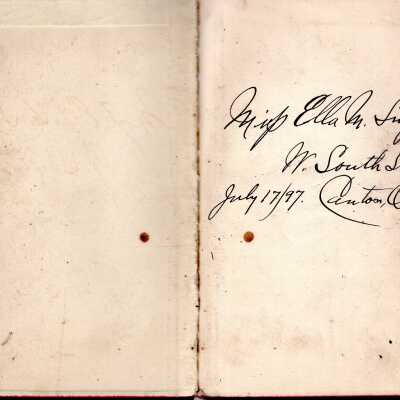 Miss Ella M.
W. South
July 17/97. Canton,